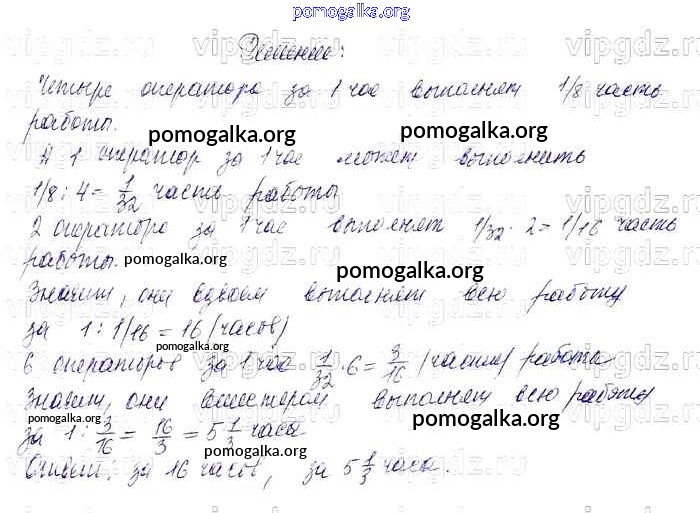 pomogalka.org
Решение:
Четыре оператора за 1 час выполнят 1/8 часть
работы.
pomogalka.org
pomogalka.org
А 1 оператор за 1 час может выполнить
1/8 : 4 = 1/32 часть работы
2 оператора за 1 час выполнят 1/32 · 2 = 1/16 часть
работы.
pomogalka.org
pomogalka.org
Значит, они вдвоем выполнят всю работу
за 1 : 1/16 = 16 (часов)
pomogalka.org
6 операторов за 1 час 1/32 · 6 = 3/16 (части) работы
Значит, они вшестером выполнят всю работу
pomogalka.org
pomogalka.org
за 1 : 3/16 = 16/3 = 5 1/3 часа
pomogalka.org
Ответ: за 16 часов, за 5 1/3 часа.
vipgdz.ru vipgdz.ru vipgdz.ru